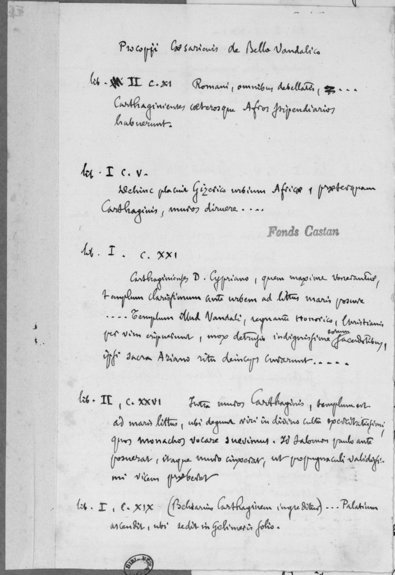 Procopii Cæsariensis de Bello Vandalico
lib. II c. XI Romani, omnibus debellatis, ....
Carthaginienses cæterosque Afros stipendiarios
habuerunt.
lib. I c. V.
Dehinc placuit Gizerico urbium Africæ, præterquam
Carthaginis, muros diruere ....
Fonds Castan
lib. I. c. XXI
Carthaginienses D. Cypriano, quem maxime venerantur,
templum clarissimum ante urbem ad littus maris posuere
.... Templum illud Vandali, regnante Honorico, Christianis
per vim eripuerunt, mox detrusis indignissime eorum sacerdotibus,
ipsi sacra Ariano ritu deinceps curarunt .....
lib. II, c. XXVI Intra muros Carthaginis, templum est
ad maris littus, ubi degunt viri in divino cultu exercitatissimi,
quos monachos vocare suevimus. Id Salomon paulo ante
posuerat, itaque muro cinxerat, ut propugnaculi validissi-
mi vicem præberet
lib. I, c. XIX (Belisarius Carthaginem ingreditur) ... Palatium
ascendit, ubi sedit in Gelimeris solio.